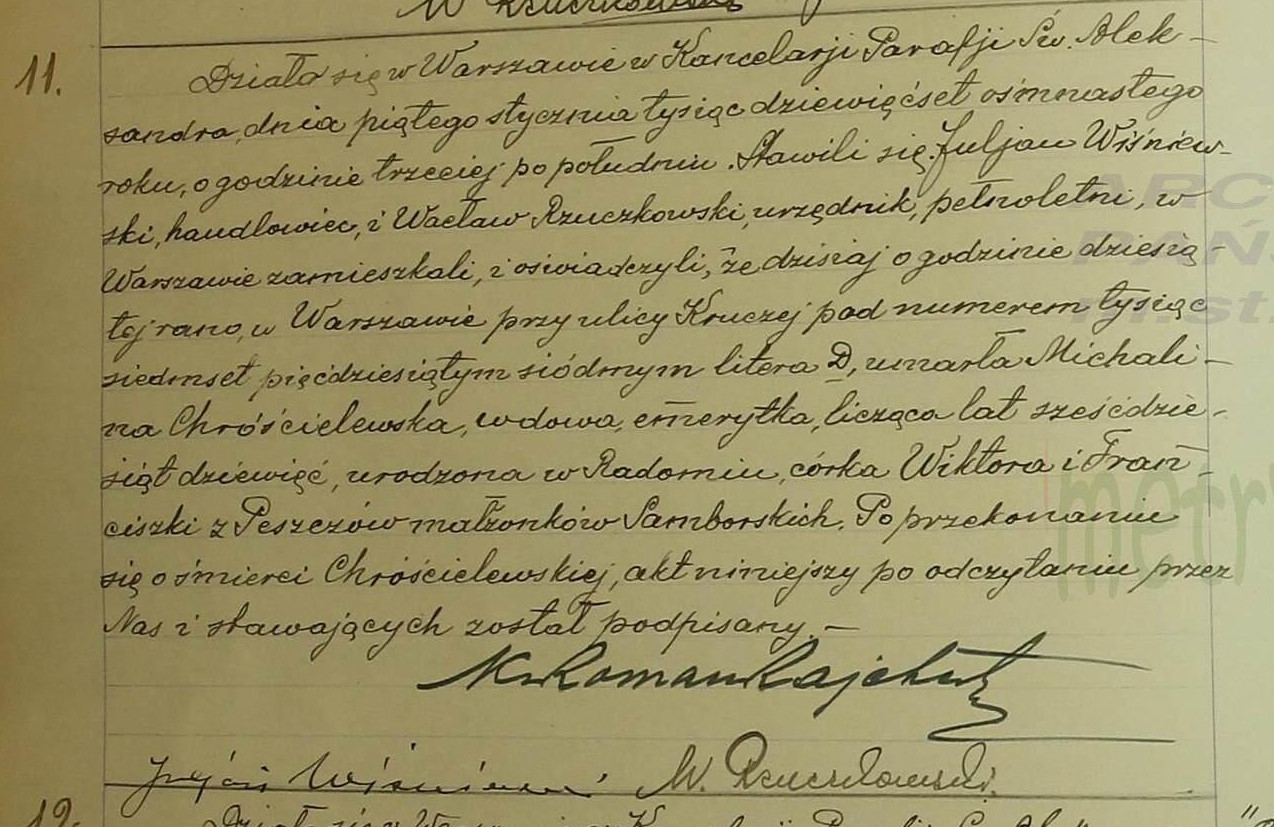 W Rzuczkowski
11.
Działo się w Warszawie w Kancelarji Parafji Św. Alek-
sandra, dnia piątego stycznia tysiąc dziewięćset ośmnastego
roku, o godzinie trzeciej po południu. Stawili się: Juljan Wiśniew-
ski, handlowiec, i Wacław Rzuczkowski, urzędnik, pełnoletni, w
Warszawie zamieszkali, i oświadczyli, że dzisiaj o godzinie dziesią-
tej rano, w Warszawie przy ulicy Kruczej pod numerem tysiąc
siedmset pięćdziesiątym siódmym litera D, umarła Michali-
na Chróścielewska, wdowa, emerytka, licząca lat sześćdzie-
siąt dziewięć, urodzona w Radomiu, córka Wiktora i Fran-
ciszki z Peszczów małżonków Samborskich. Po przekonaniu
się o śmierci Chróścielewskiej, akt niniejszy po odczytaniu przez
Nas i stawających został podpisany. —
Roman
Juljan Wiśniewski W. Rzuczkowski
12.
Działo się w Kancelarji Parafji Św. Alek-
ARC
PAŃS
m.st.
metr